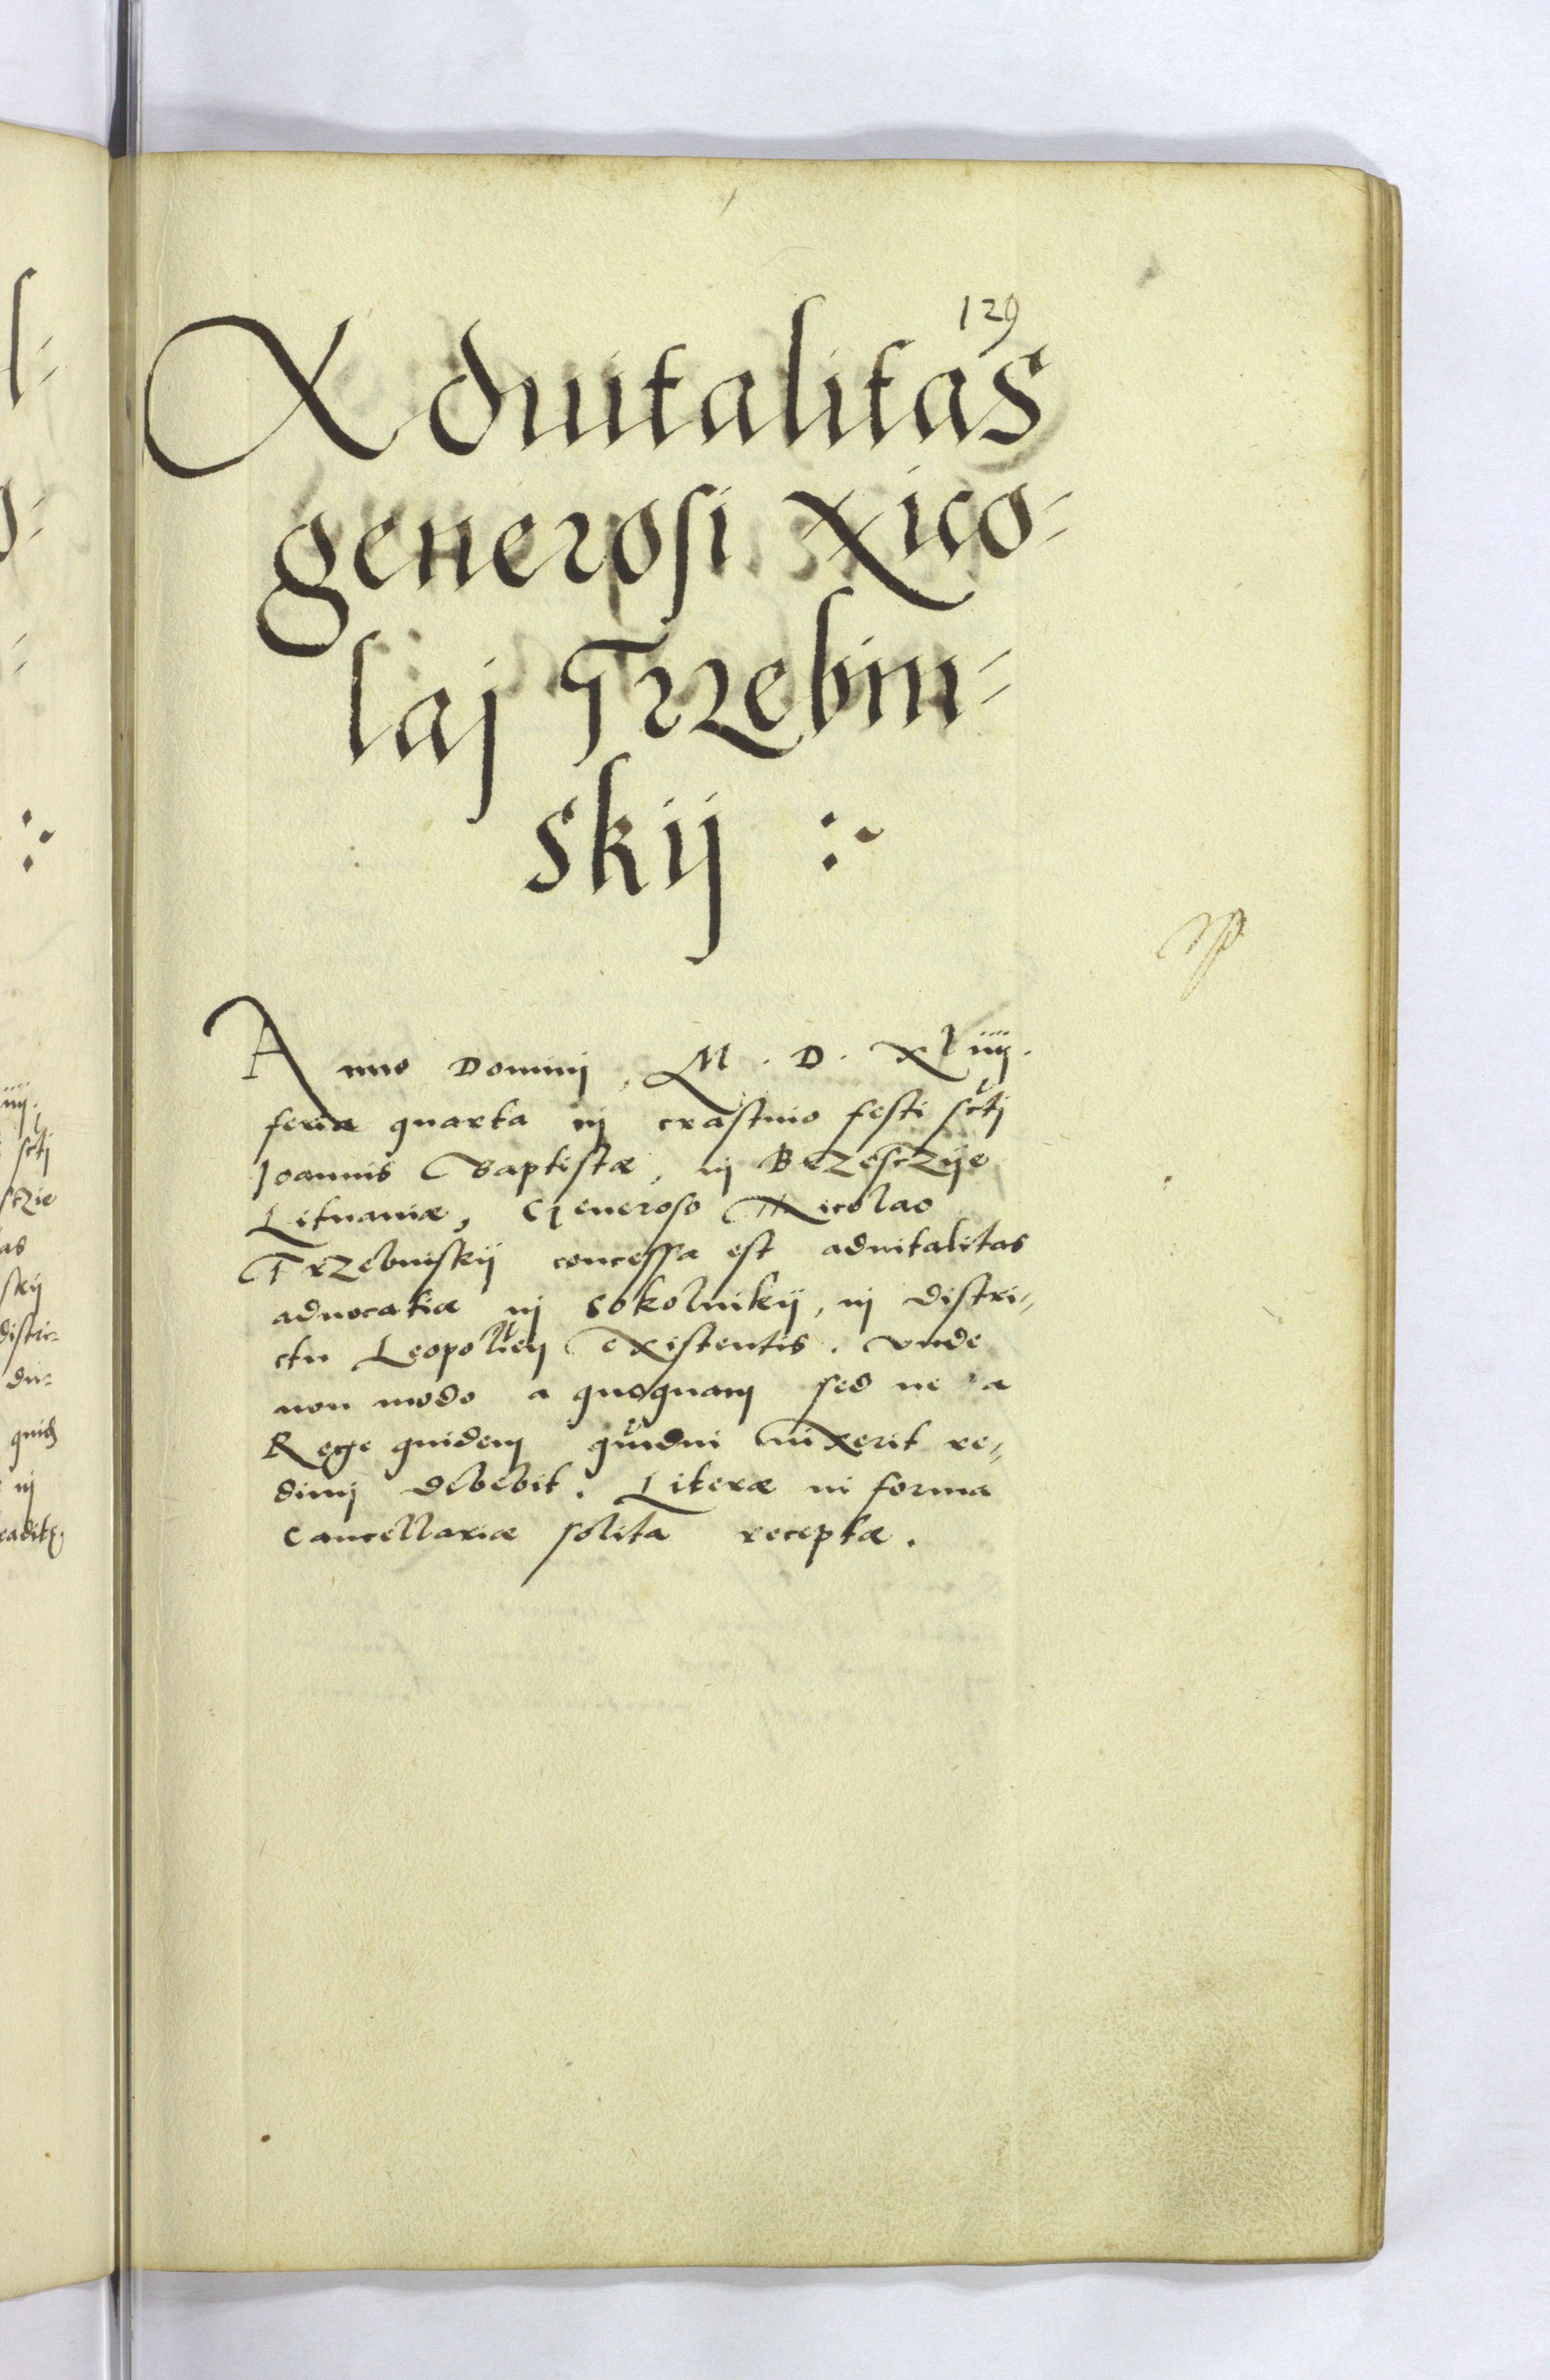 129
Aduitalitas
generosi Nico-
laj Trzebin-
skij :~
Anno Dominj, M. D. XLiiij.
feria quarta in crastino festi sctj
Joannis Baptistæ, in Brzesczije
Lituaniæ, Generoso Nicolao
Trzebinskij concessa est aduitalitas
aduocatiæ in Sokolnikij, in distri-
ctu Leopolien existentis. Vnde
non modo a quoquam sed ne a
Rege quidem quandiu uixerit re-
dimj debebit. Literæ in forma
Cancellariæ solita receptæ.